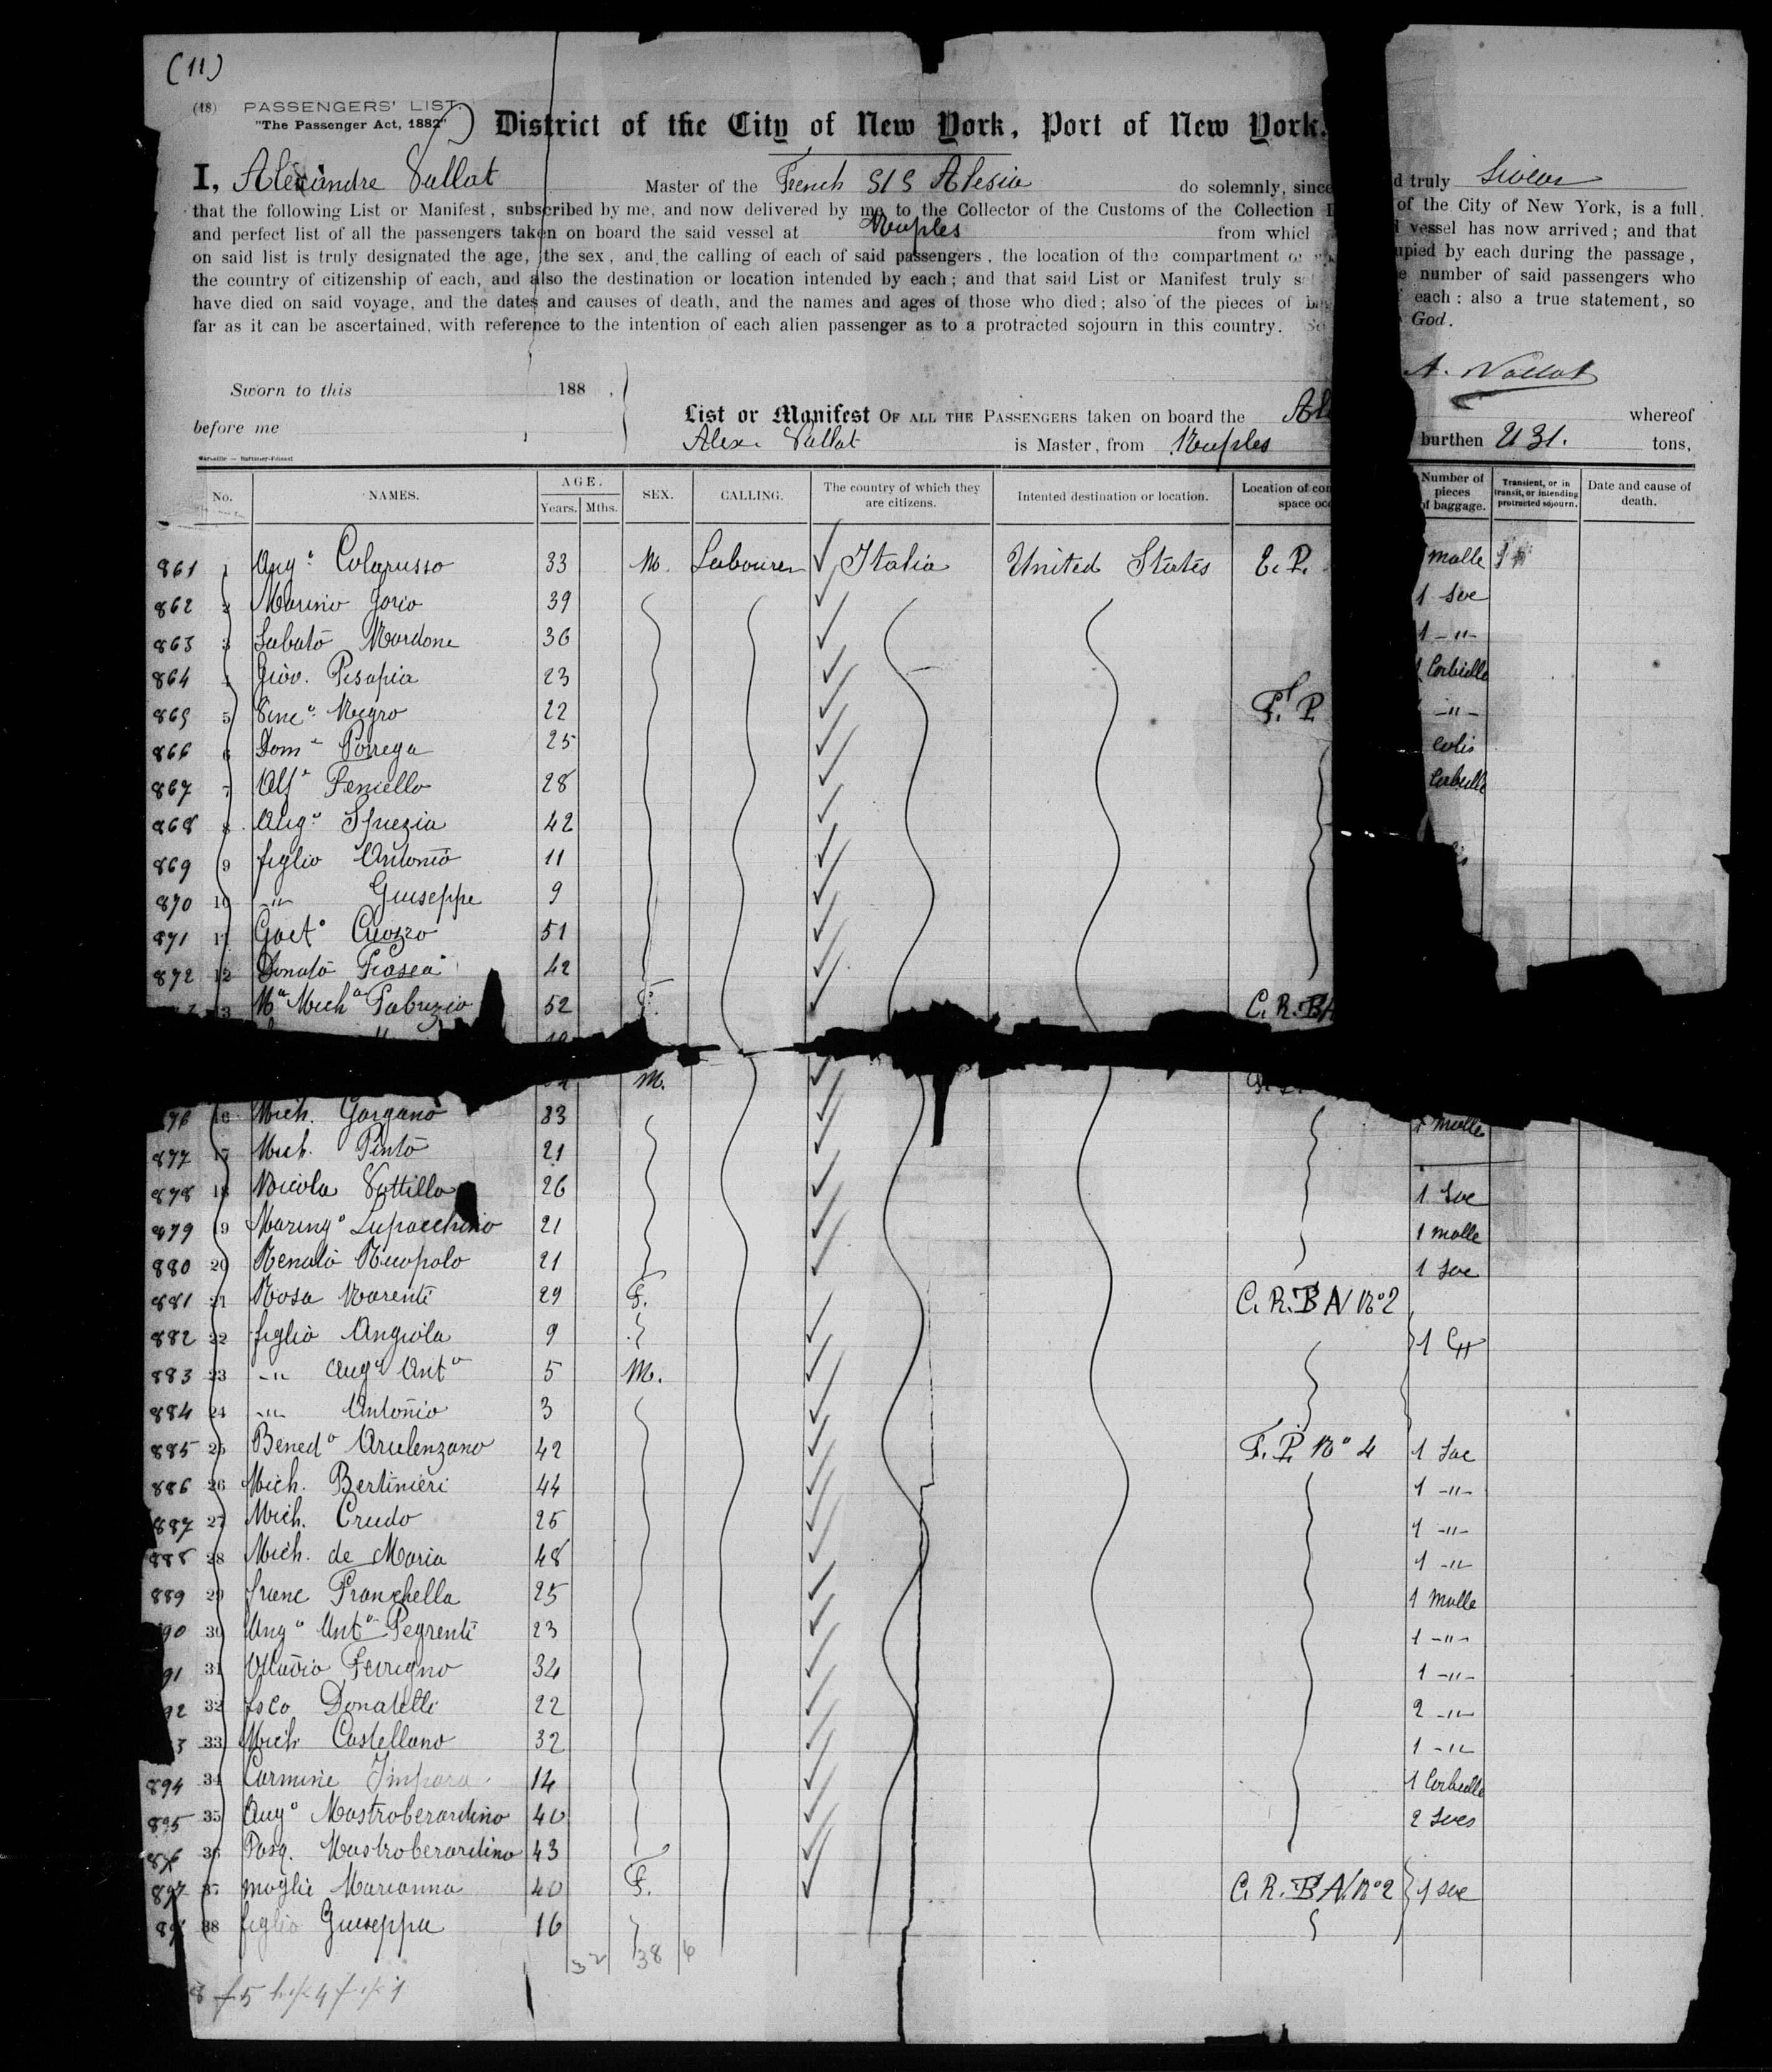 (11)
(18) PASSENGERS' LIST.
"The Passenger Act, 1882"
District of the City of New York, Port of New York.
I, Alexandre Vallat Master of the French S/S Alesia do solemnly, since d truly Swear
that the following List or Manifest, subscribed by me, and now delivered by me to the Collector of the Customs of the Collection of the City of New York, is a full
and perfect list of all the passengers taken on board the said vessel at Naples from which vessel has now arrived; and that
on said list is truly designated the age, the sex, and the calling of each of said passengers, the location of the compartment or upied by each during the passage,
the country of citizenship of each, and also the destination or location intended by each; and that said List or Manifest truly number of said passengers who
have died on said voyage, and the dates and causes of death, and the names and ages of those who died; also of the pieces of each: also a true statement, so
far as it can be ascertained, with reference to the intention of each alien passenger as to a protracted sojourn in this country. God.
A. Vallat
Sworn to this 188 ,
before me
List or Manifest OF ALL THE PASSENGERS taken on board the Al whereof
Alex. Vallat is Master, from Naples burthen tons,
No. NAMES. AGE. Years. Mths. SEX. CALLING. The country of which they are citizens. Intented destination or location. Location of com space occ Number of pieces of baggage. Transient, or in transit, or intending protracted sojourn. Date and cause of death.
861 1 Ang° Colarusso 33 M. Labourer Italia United States E. P. malle
862 2 Marino Jorio 39 1 Sac
863 3 Sabato Nardone 36 1 -"-
864 4 Giov. Pisapia 23 1 Corbeille
865 5 Vinc° Negro 22 F. P. -"-
866 6 Dom° Porrega 25 Colis
867 7 Alf° Feniello 28 Corbeille
868 8 Ang° Spuezia 42
869 9 figlio Antonio 11
870 10 -"- Giuseppe 9
871 11 Gaet° Cuozzo 51
872 12 Donato Frasca 42
3 Mª Michª Fabrizio 52 F. C. R. B
M.
76 16 Mich. Gargano 33 1 Malle
877 17 Mich. Pinto 21
878 18 Nicola Vottilla 26 1 Sac
879 19 Maring° Lupacchino 21 1 Malle
880 20 Renato Nuopolo 21 1 Sac
881 21 Rosa Narenti 29 F. C. R. B AV N°2
882 22 figlia Angiola 9 1
883 23 -"- Angª Antº 5 M.
884 24 -"- Antonio 3
885 25 Bened° Arulenzano 42 F. P. N° 4 1 Sac
886 26 Mich. Bertinieri 44 1 -"-
887 27 Mich. Crudo 25 1 -"-
888 28 Mich. de Maria 48 1 -"-
889 29 Franc Franchella 25 1 Malle
90 30 Ang° Ant° Pegrenti 23 1 -"-
91 31 Ottavio Ferrigno 34 1 -"-
92 32 Fsco Donatelli 22 2 -"-
3 33 Mich Castellano 32 1 -"-
894 34 Carmine Impara 14 1 Corbeille
895 35 Ang° Mastroberardino 40 2 Sacs
896 36 Pasq. Mastroberardino 43
897 37 moglie Marianna 40 F. C. R. B AV N°2 1 sac
89 38 figlia Giuseppa 16
32 38 6